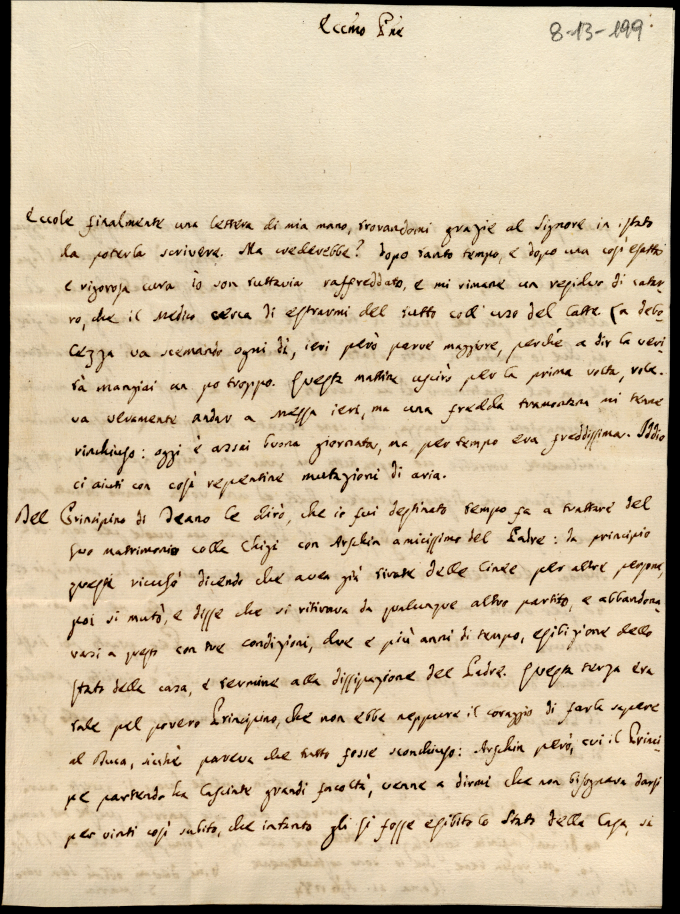 Eccmo Pne
8-13-199
Eccole finalmente una lettera di mia mano, trovandomi grazie al Signore in istato
da poterla scrivere. Ma crederebbe? dopo tanto tempo, e dopo una così esatta
e rigorosa cura io son tuttavia raffreddato, e mi rimane un residuo di catar-
ro, che il Medico cerca di estrarmi del tutto coll'uso del latte. La debo-
lezza va scemando ogni dì, ieri però parve maggiore, perchè a dir la veri-
tà mangiai un po troppo. Questa mattina uscirò per la prima volta, vole-
va veramente andar a Messa ieri, ma una fredda tramontana mi tenne
rinchiuso: oggi è assai buona giornata, ma per tempo era freddissima. Iddio
ci aiuti con così repentine mutazioni di aria.
Del Principino di Teano le dirò, che io fui destinato tempo fa a trattare del
suo matrimonio colla Chigi con Aschia amicissimo del Padre: da principio
questi ricusò dicendo che avea già tirate delle linee per altre persone,
poi si mutò, e disse che si ritirava da qualunque altro partito, e abbandona-
vasi a questo con tre condizioni, due e più anni di tempo, esibizione dello
stato della casa, e termine alla dissipazione del Padre. Questa terza era
tale pel povero Principino, che non ebbe neppure il coraggio di farla sapere
al Duca, sicchè pareva che tutto fosse sconchiuso: Aschia però, cui il Princi-
pe partendo ha lasciate grandi facoltà, venne a dirmi che non bisognava darsi
per vinti così subito, che intanto gli si fosse esibito lo Stato della Casa, si